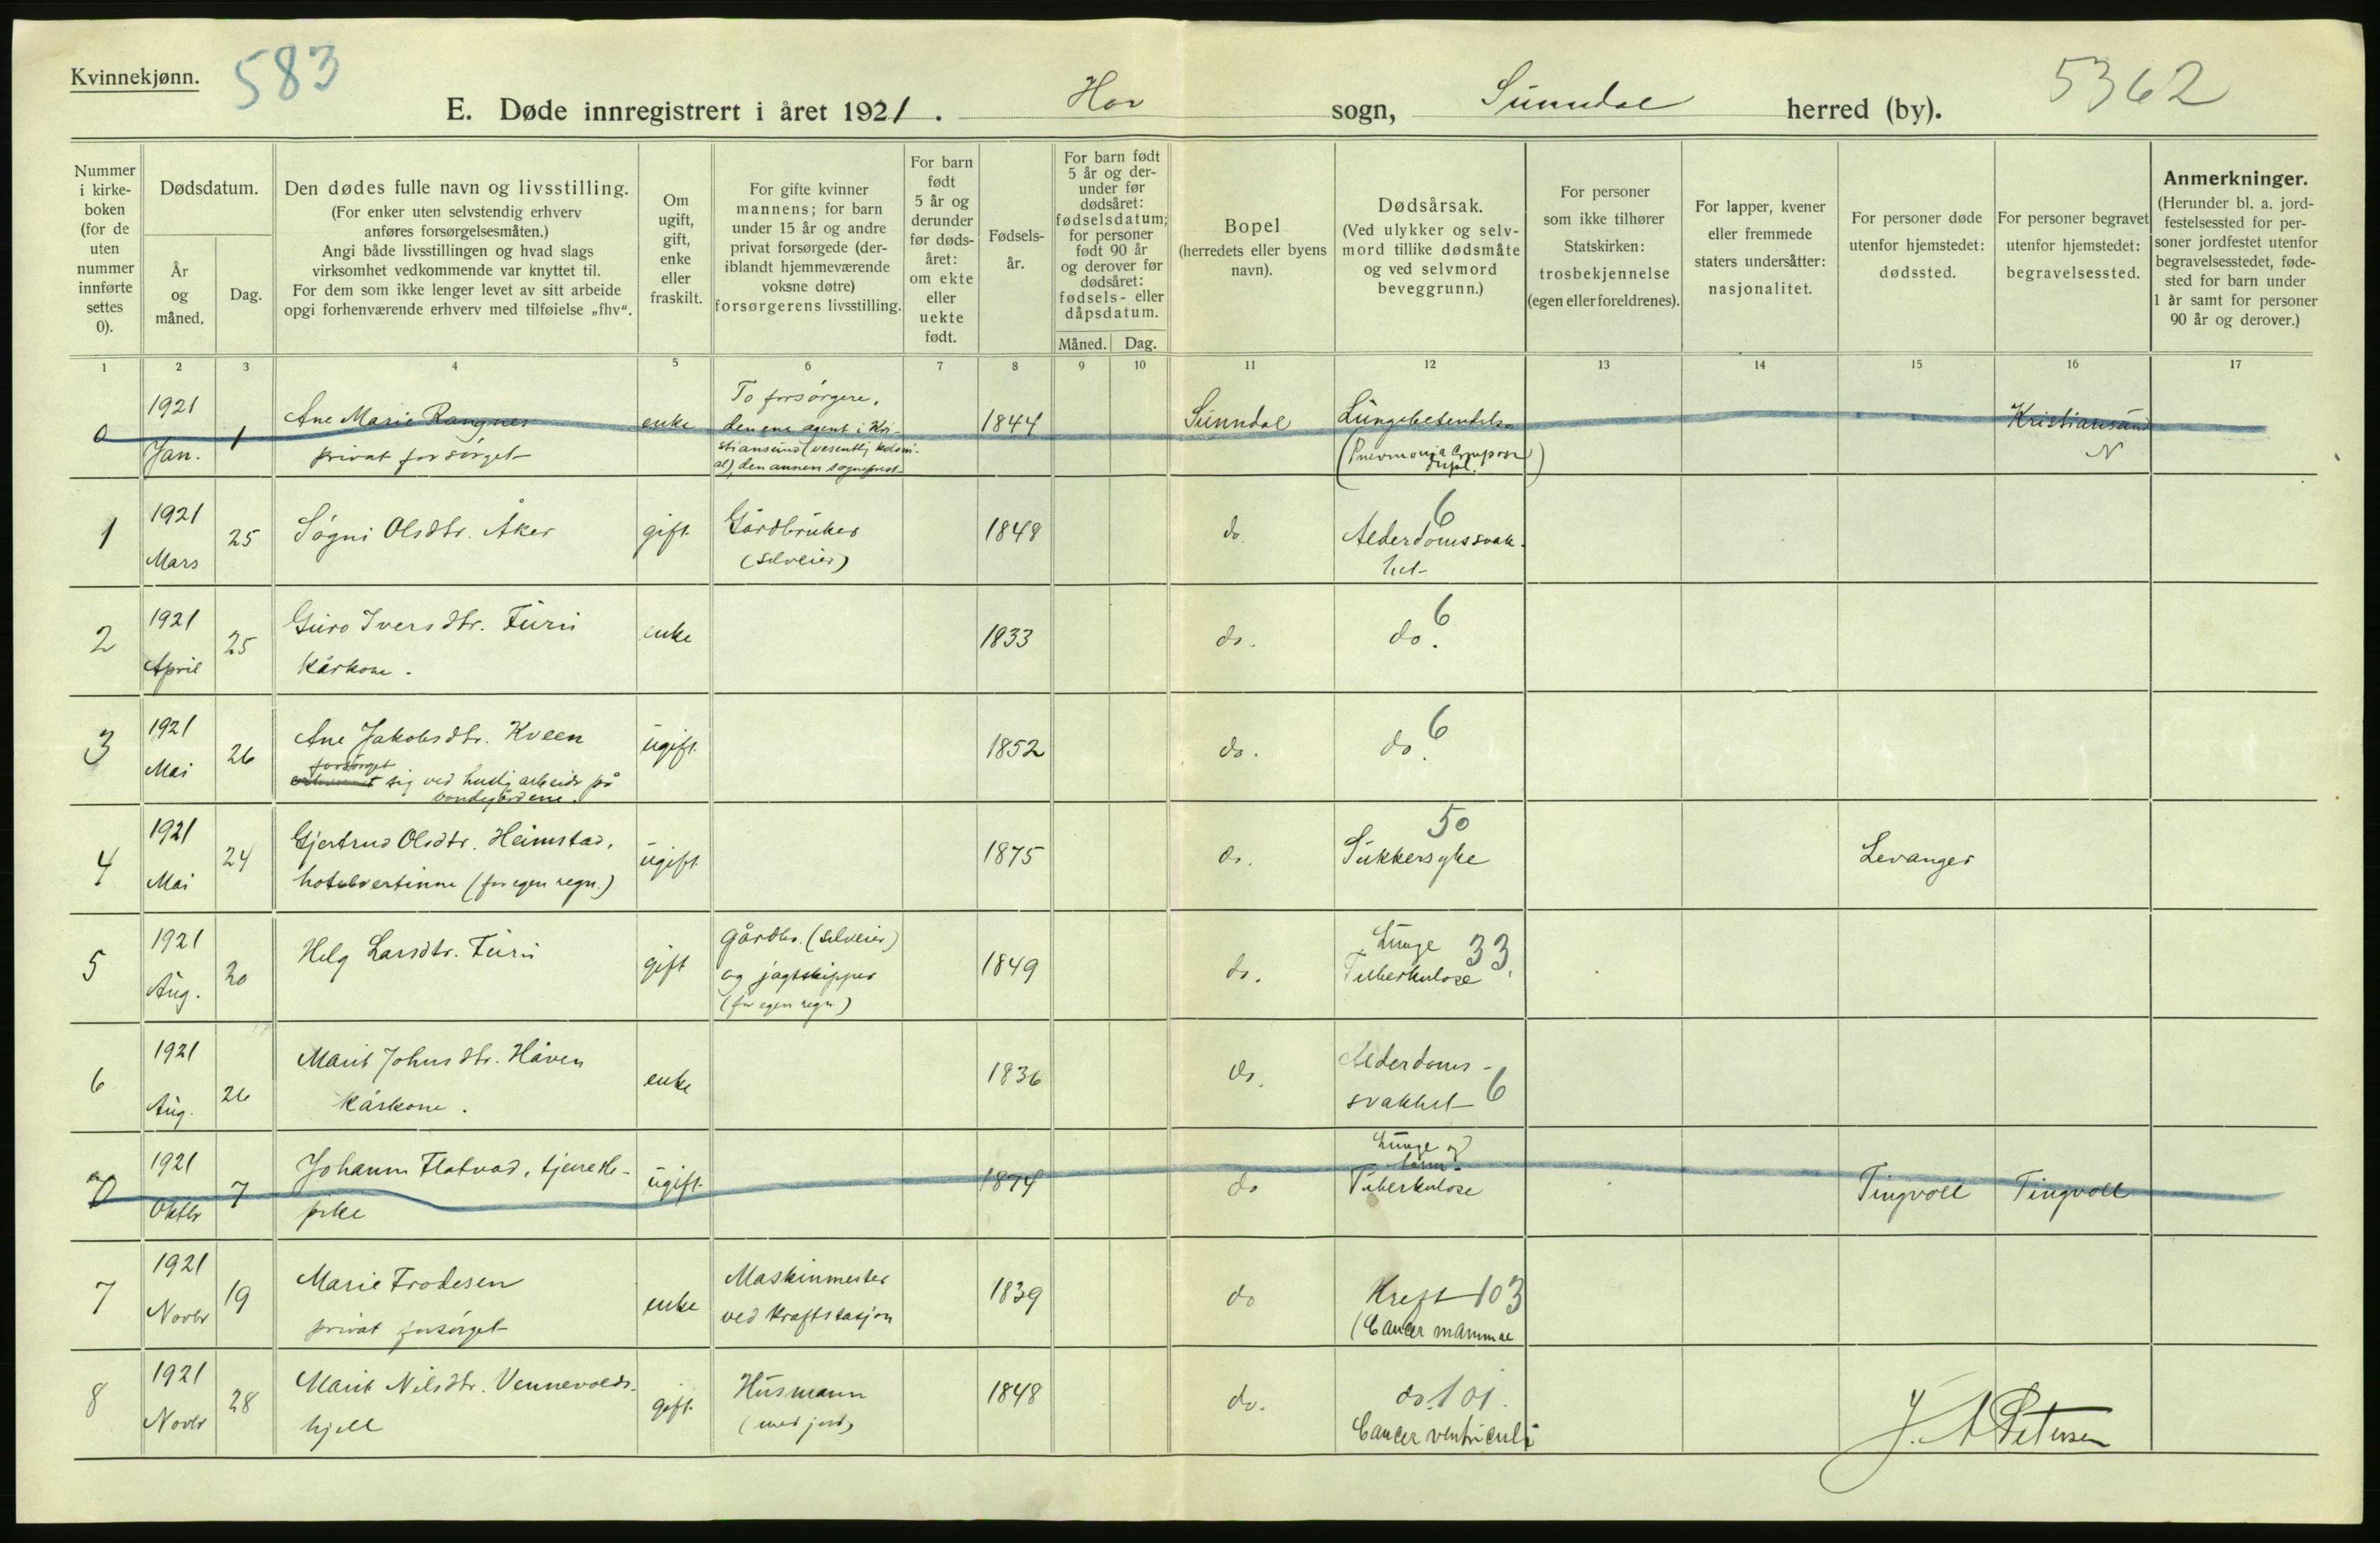 Kvinnekjønn.
583
E. Døde innregistrert i året 1921. Hov sogn, Sunndal herred (by).
5362
Nummer i kirkeboken (for de uten nummer innførte settes 0).
Dødsdatum.
År og måned.
Dag.
Den dødes fulle navn og livsstilling.
(For enker uten selvstendig erhverv
anføres forsørgelsesmåten.)
Angi både livsstillingen og hvad slags
virksomhet vedkommende var knyttet til.
For dem som ikke lenger levet av sitt arbeide
opgi forhenværende erhverv med tilføielse „fhv“.
Om
ugift,
gift,
enke
eller
fraskilt.
For gifte kvinner
mannens; for barn
under 15 år og andre
privat forsørgede (der-
iblandt hjemmeværende
voksne døtre)
forsørgerens livsstilling.
For barn
født
5 år og
derunder
før døds-
året:
om ekte
eller
uekte
født.
Fødsels-
år.
For barn født
5 år og der-
under før
dødsåret:
fødselsdatum;
for personer
født 90 år
og derover før
dødsåret:
fødsels- eller
dåpsdatum.
Måned.
Dag.
Bopel
(herredets eller byens
navn).
Dødsårsak.
(Ved ulykker og selv-
mord tillike dødsmåte
og ved selvmord
beveggrunn.)
For personer
som ikke tilhører
Statskirken:
trosbekjennelse
(egen eller foreldrenes).
For lapper, kvener
eller fremmede
staters undersåtter:
nasjonalitet.
For personer døde
utenfor hjemstedet:
dødssted.
For personer begravet
utenfor hjemstedet:
begravelsessted.
Anmerkninger.
(Herunder bl. a. jord-
festelsessted for per-
soner jordfestet utenfor
begravelsesstedet, føde-
sted for barn under
1 år samt for personer
90 år og derover.)
1 2 3 4 5 6 7 8 9 10 11 12 13 14 15 16 17
0
1921
Jan.
1
Ane Marie Rangnes
privat forsørget
enke
To forsørgere,
den ene agent i Kri-
stiansund (vesentlig koloni-
al), den annen sogneprest
1844
Sunndal
Lungebetendelse
(Pneumonia
Kristiansund
N
1
1921
Mars
25
Søgni Olsdtr. Aker
gift
Gårdbruker
(selveier)
1848
do.
6
Alderdomssvak-
het
2
1921
April
25
Guro Iversdtr. Furu
Kårkone.
enke
1833
do.
do. 6
3
1921
Mai
26
Ane Jakobsdtr. Kveen
forsørget
sig ved huslig arbeide på
bondegårdene.
ugift
1852
do.
do. 6
4
1921
Mai
24
Gjertrud Olsdtr. Heimstad,
hotelvertinne (for egen regn.)
ugift
1875
do.
50
Sukkersyke
Levanger
5
1921
Aug.
20
Helg Larsdtr. Furu
gift
gårdbr. (selveier)
og jagtskipper
(for egen regn.)
1849
do.
Lunge 33
Tuberkulose
6
1921
Aug.
26
Marit Johnsdtr. Håven
Kårkone.
enke
1836
do.
Alderdoms-
svakhet 6
0
1921
Oktbr
7
Johanna Flatvad, tjeneste-
pike
ugift
1874
do
Lunge og
tarm-
Tuberkulose
Tingvoll
Tingvoll
7
1921
Novbr
19
Marie Frodesen
privat forsørget
enke
Maskinmester
ved kraftstasjon
1839
do
Kreft 103
(Cancer mammae
8
1921
Novbr
28
Marit Nilsdtr. Vennevolds-
hjell
gift
Husmann
(med jord)
1848
do.
do. 101.
Cancer ventriculi
J. A Petersen